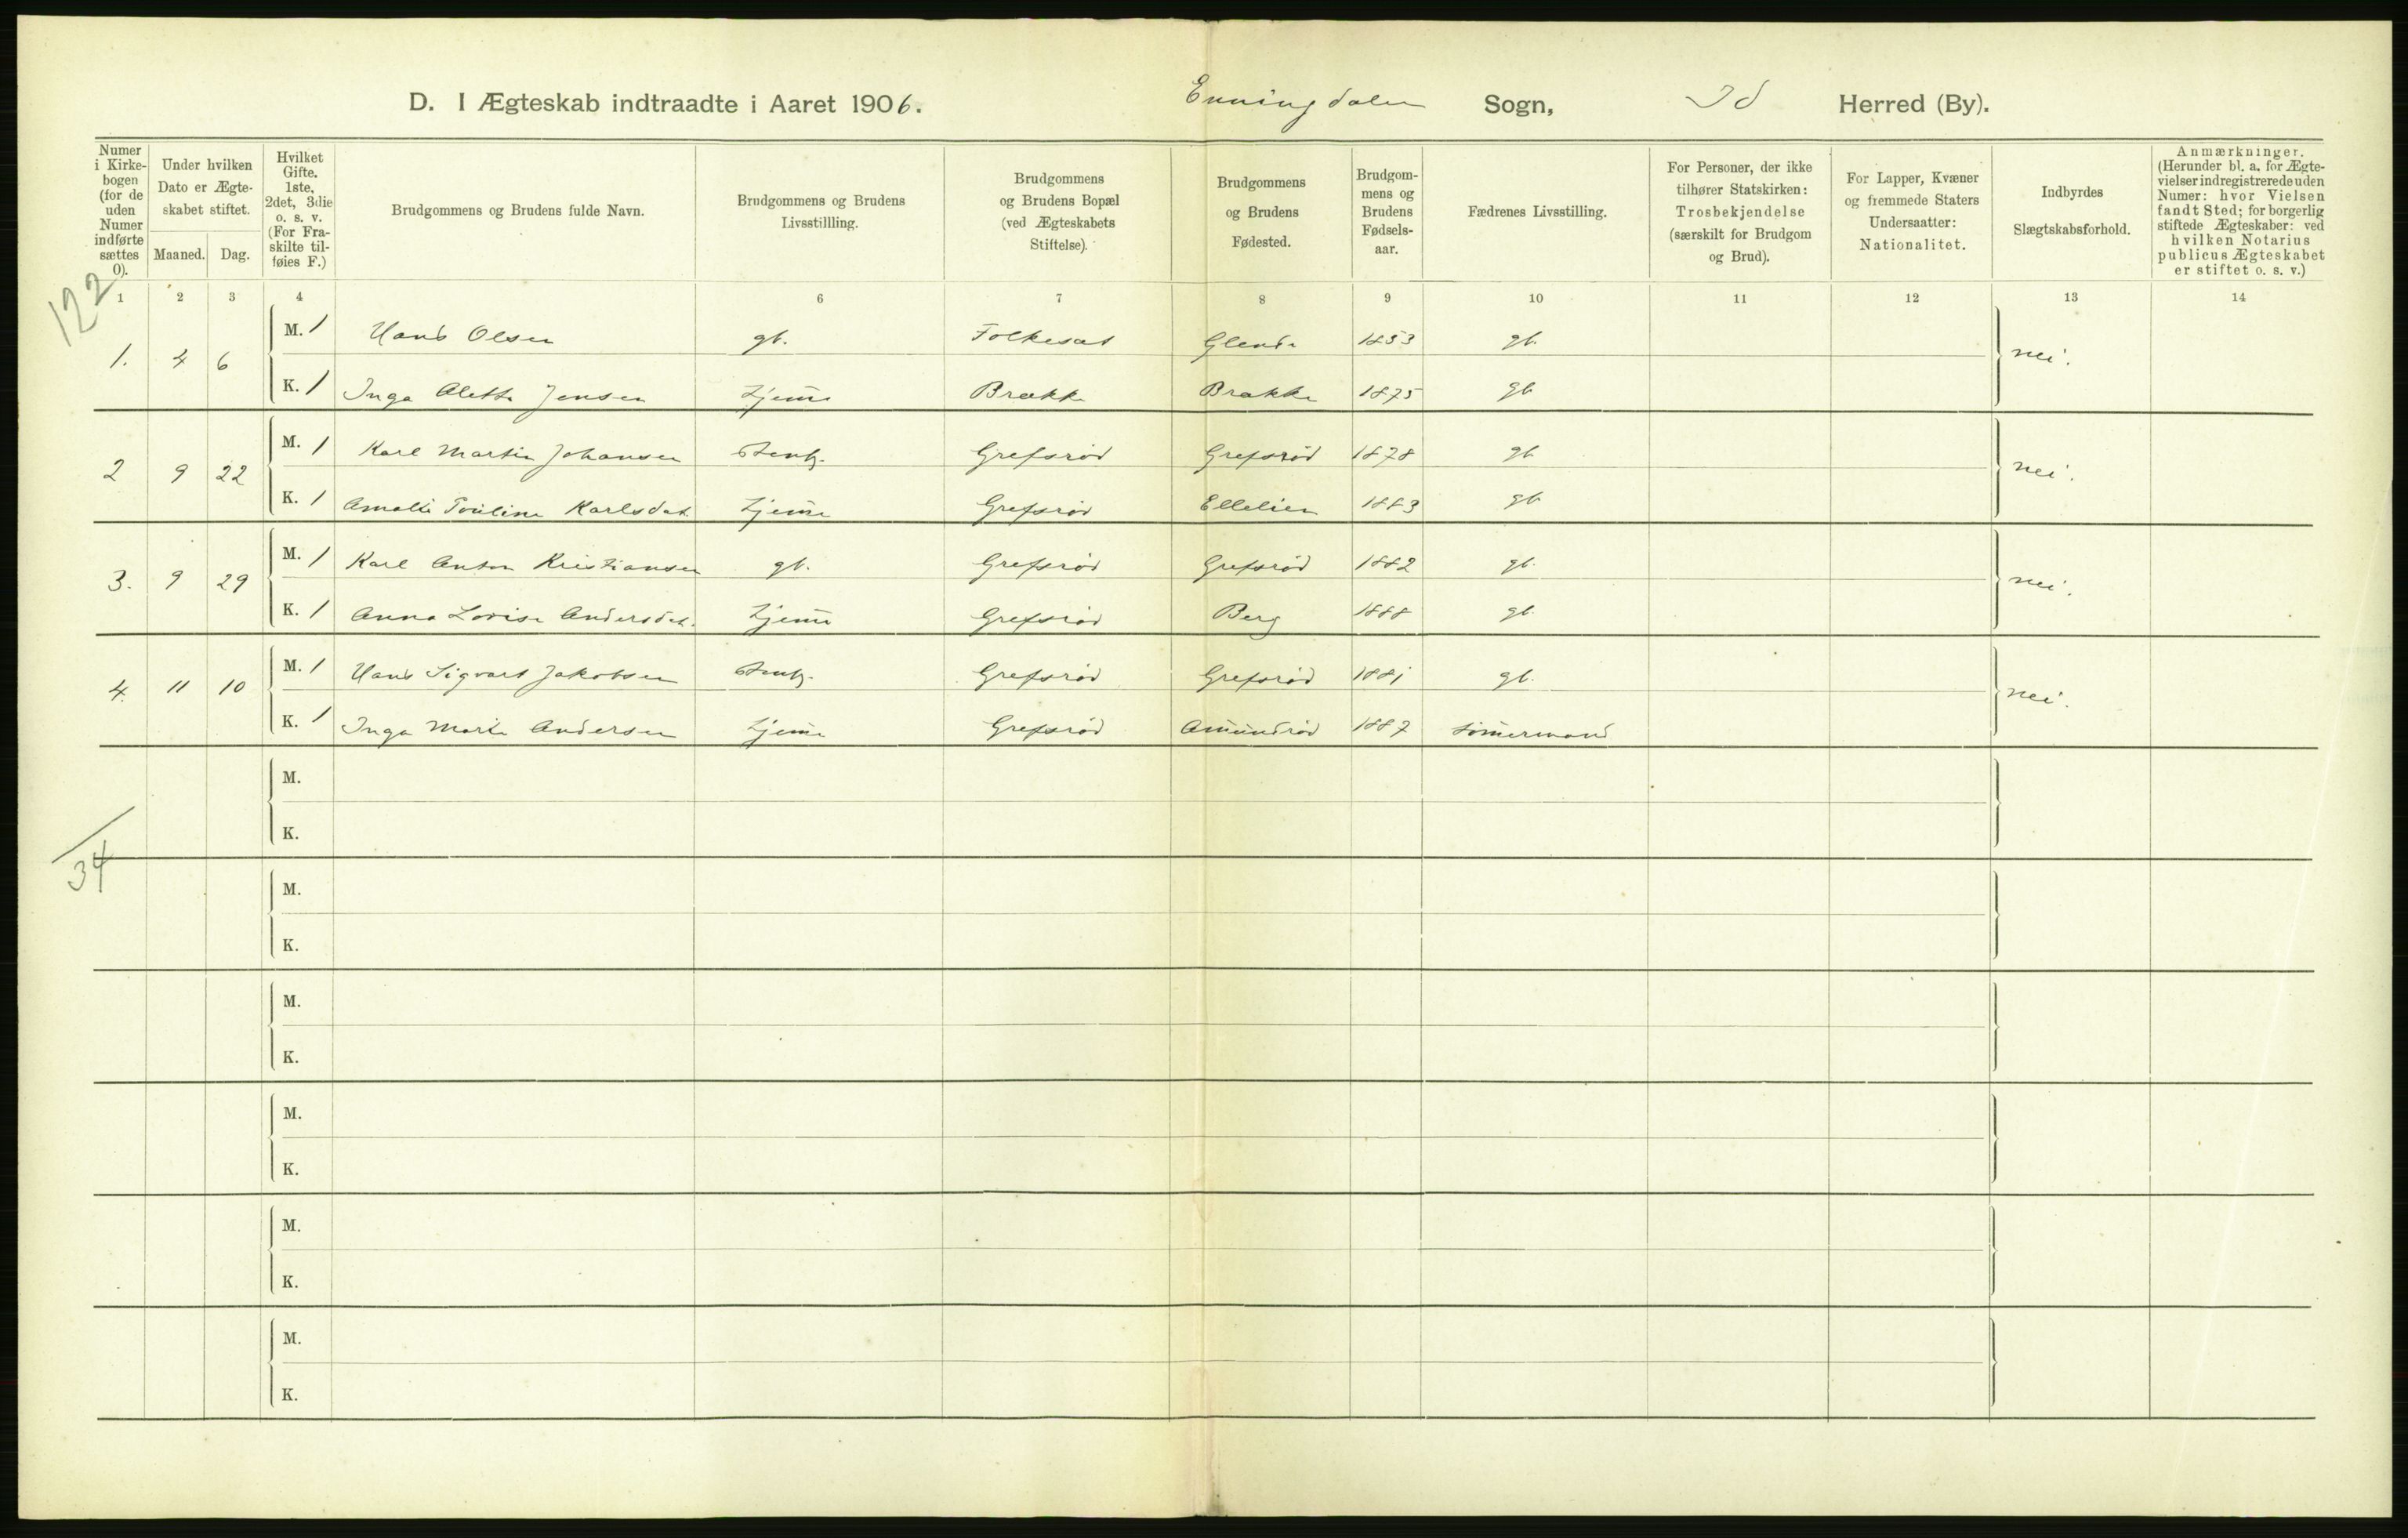 D. I Ægteskab indtraadte i Aaret 1906. Enningdalen Sogn, Id Herred (By).
Numer i Kirkebogen (for de uden Numer indførte sættes 0).
Under hvilken Dato er Ægteskabet stiftet.
Maaned. Dag.
Hvilket Gifte. 1ste, 2det, 3die o. s. v. (For Fraskilte tilføies F.)
Brudgommens og Brudens fulde Navn.
Brudgommens og Brudens Livsstillling.
Brudgommens og Brudens Bopæl (ved Ægteskabets Stiftelse).
Brudgommens og Brudens Fødested.
Brudgommens og Brudens Fødselsaar.
Fædrenes Livsstilling.
For Personer, der ikke tilhører Statskirken: Trosbekjendelse (særskilt for Brudgom og Brud).
For Lapper, Kvæner og fremmede Staters Undersaatter: Nationalitet.
Indbyrdes Slægtskabsforhold.
Anmærkninger. (Herunder bl. a. for Ægtevielser indregistrerede uden Numer: hvor Vielsen fandt Sted; for borgerlig stiftede Ægteskaber: ved hvilken Notarius publicus Ægteskabet er stiftet o. s. v.)
122
1 2 3 4 6 7 8 9 10 11 12 13 14
1. 4 6 M. 1 Hans Olsen gb. Folkesat Glende 1853 gb. nei.
K. 1 Inga Alette Jensen tjener Brække Brække 1875 gb
2 9 22 M. 1 Karl Martin Johansen Stenh. Grefsrød Grefsrød 1878 gb nei.
K. 1 Amalie Pouline Karlsdat tjener Grefsrød Ellelien 1883 gb
3. 9 29 M. 1 Karl Anton Kristiansen gb. Grefsrød Grefsrød 1882 gb. nei.
K. 1 Anna Lovise Andersdat. tjener Grefsrød Berg 1888 gb.
4. 11 10 M. 1 Hans Sigvart Jakobsen Stenh. Grefsrød Grefsrød 1881 gb. nei.
K. 1 Inga Marie Andersen tjener Grefsrød Amundrød 1887 tømermand
M.
K.
34
M.
K.
M.
K.
M.
K.
M.
K.
M.
K.